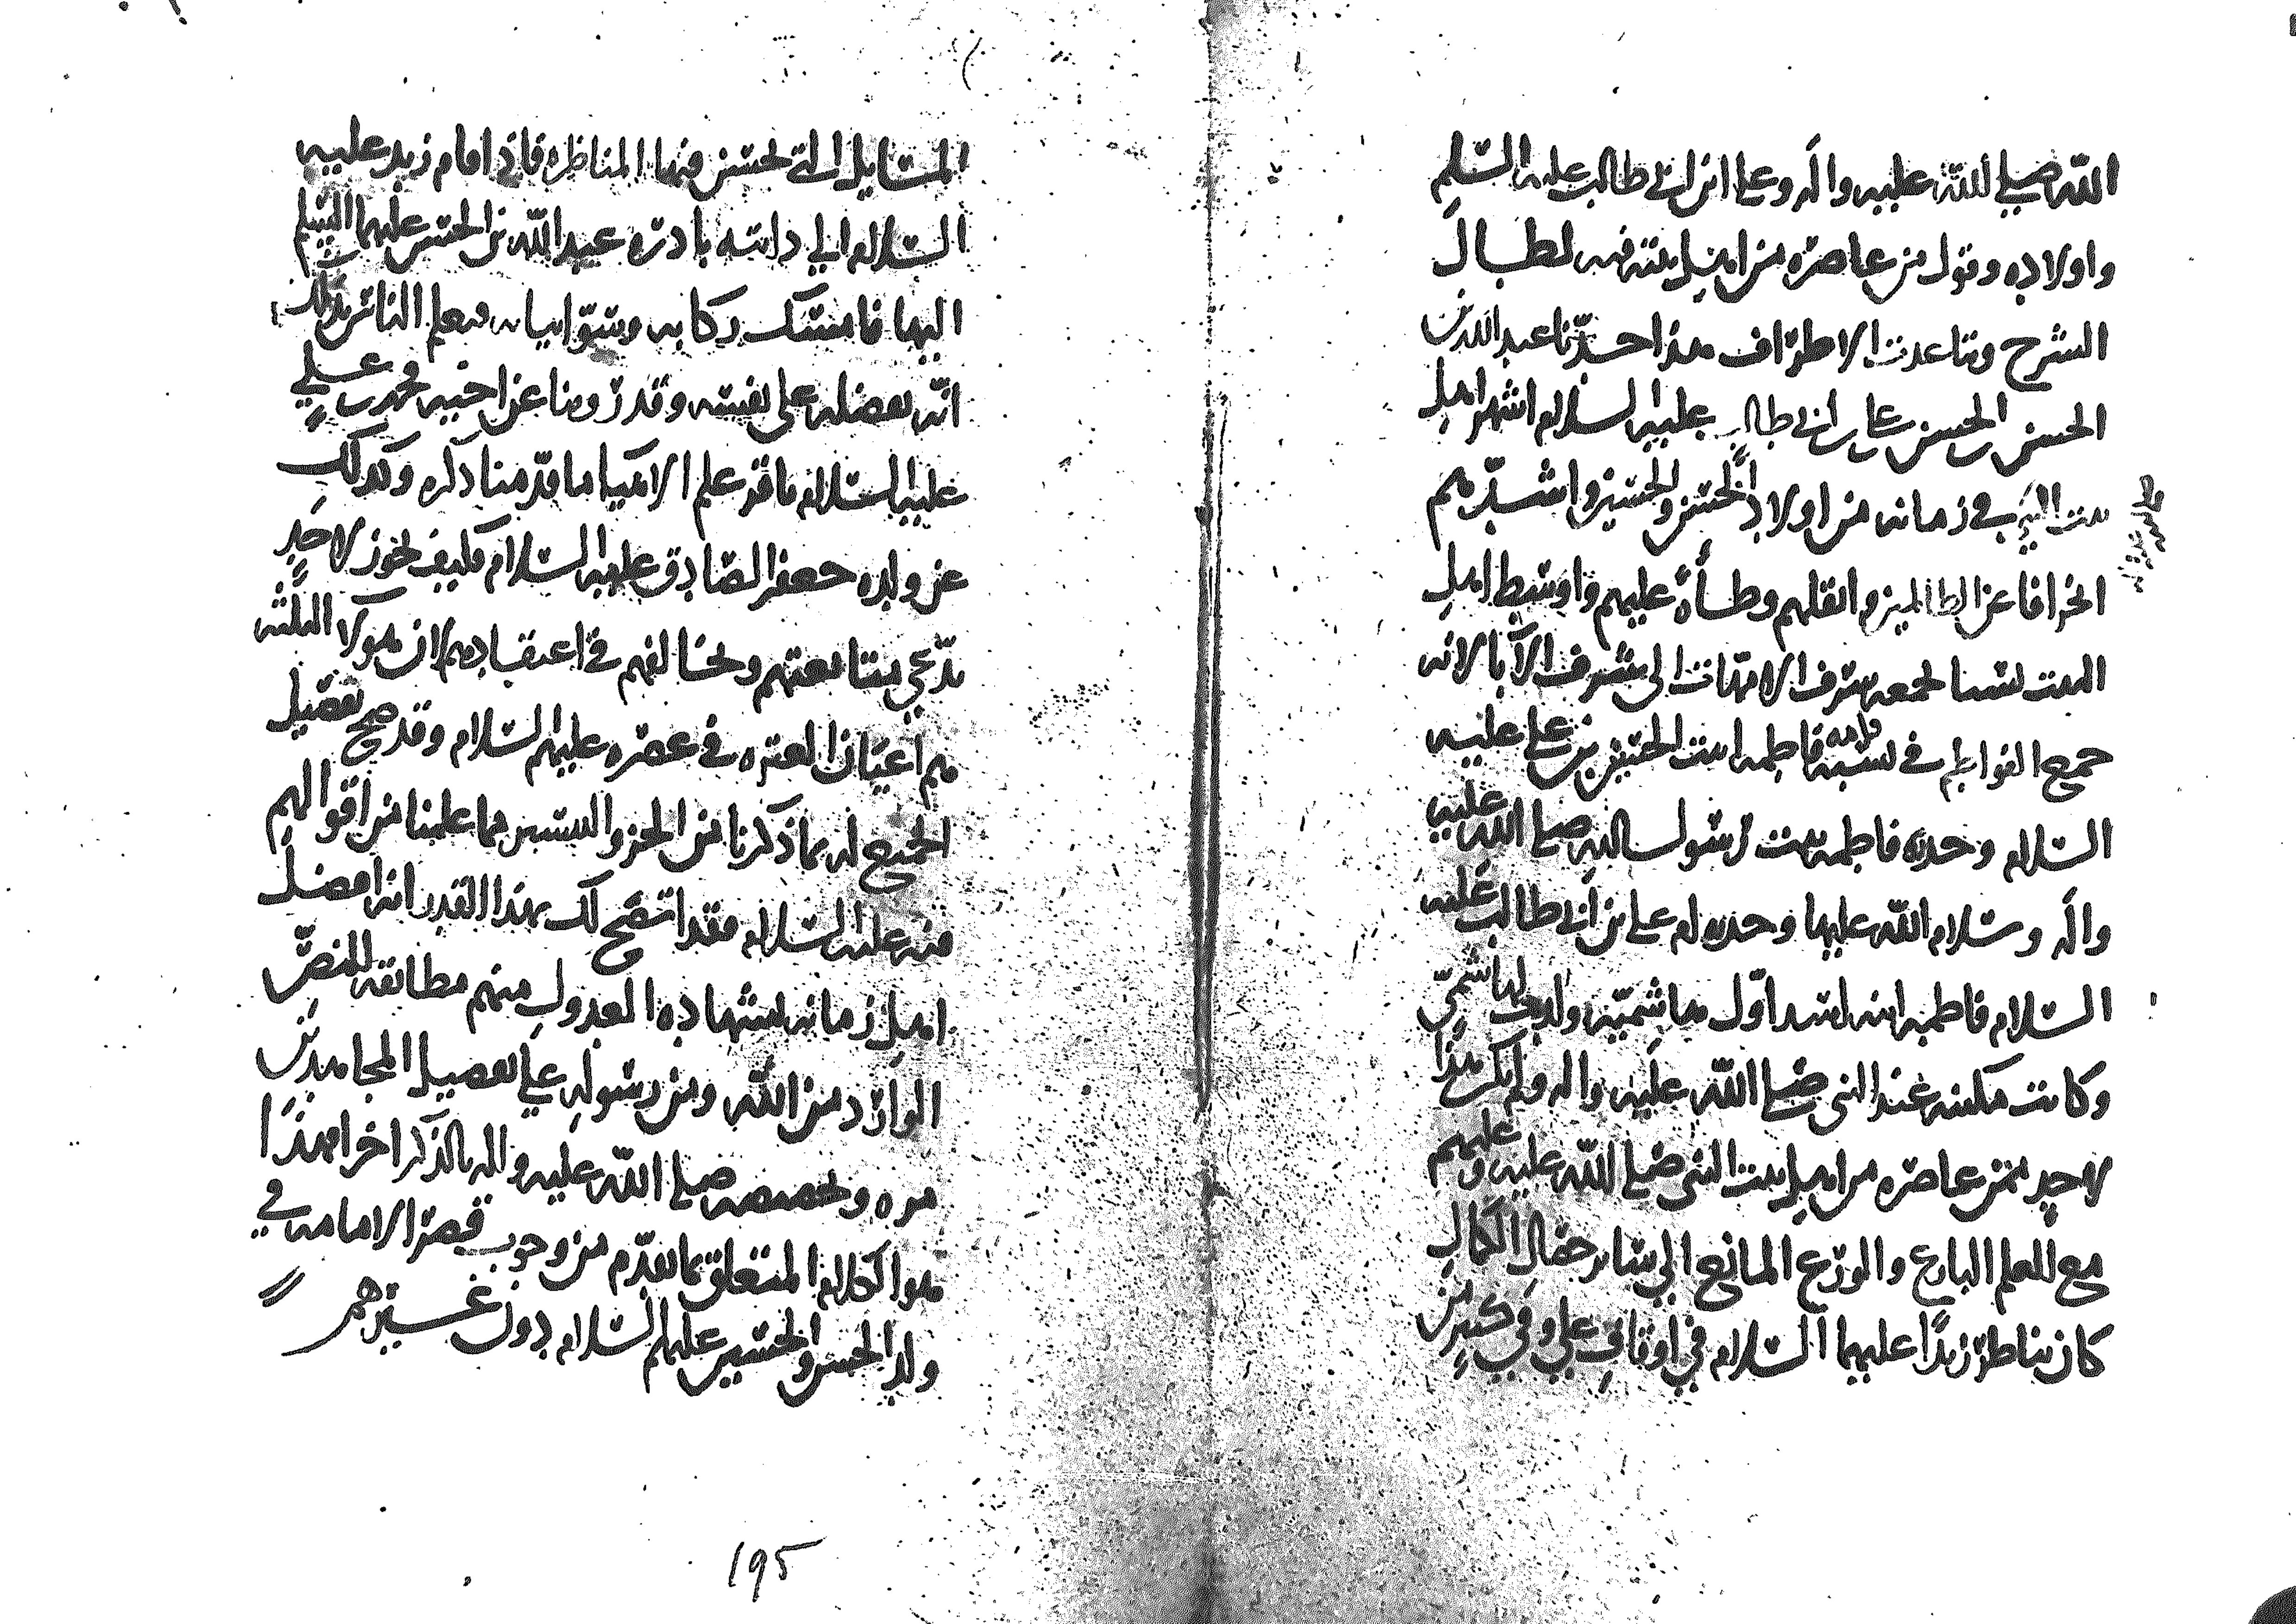 الله صلى الله عليه وآله وعلي ابن أبي طالب عليه السلم
واولاده وقول من عاصره من اهل بيته فيه لطال
الشرح وتباعدت الاطراف هذا حدّنا عبد الله بن
الحسن بن الحسن بن علي بن ابي طالب عليه السلام اشهر اهل
بيت النبي في زمانه من اولاد الحسن والحسين واشدّهم
انحرافا عن الظالمين واثقلهم وطأةً عليهم واوسط اهل
البيت نسبا لجمعه شرف الامهات الى شرف الآبا لانه
جمع الفواطم في نسبه فامه فاطمه ابنت الحسين بن علي عليه
السلام وجدته فاطمه بنت رسول الله صلى الله عليه
وآله وسلام الله عليها وجدته ام علي بن أبي طالب عليه
السلام فاطمه ابنه اسد اوّل هاشميّه ولدت لهاشميّ
وكانت مكينه عند النبي صلى الله عليه واله ولم يكن هذا
لاحدٍ ممن عاصره من اهل بيت النبي صلى الله عليه وعليهم
مع العلم البارع والورع المانع الى سائر خصال الكمال
كان يناظر زيدًا عليهما السلام في اوقات علي وفي كثير من
المسايل التي تحسن فيها المناظره فاذا قام زيد عليه
السلام الى دابته بادره عبد الله بن الحسن عليهما السلم
اليها فامسك ركابه وسوّا ثيابه فعلم الناس بذلك
انّه يفضله على نفسه وقد روينا عن اخيه محمد بن علي
عليه السلام باقر علم الانبيا ما قدّمنا ذكره وكذلك
عن ولده جعفر الصادق عليه السلام فكيف يجوز لاحدٍ
يدّعي متابعتهم ويخالفهم في اعتقادهم لان هولا الثلثه
هم اعيان العتره في عصره عليهم السلام وقد صح تفضيل
الجميع له بما ذكرنا من الخبر واليسير مما علمنا من اقوالهم
فيه عليه السلام فقد اتضح لك بهذا القدر انه افضل
اهل زمانه بشهاده العدول منهم مطابقه للنصّ
الوارد من الله ومن رسوله على تفضيل المجاهدين
مره وتخصيصه صلى الله عليه واله بالذكر اخرا فهذا
هو الكلام المتعلق بما تقدّم من وجوب قصر الامامه في
ولد الحسن والحسين عليهم السلام دون غيرهم
195